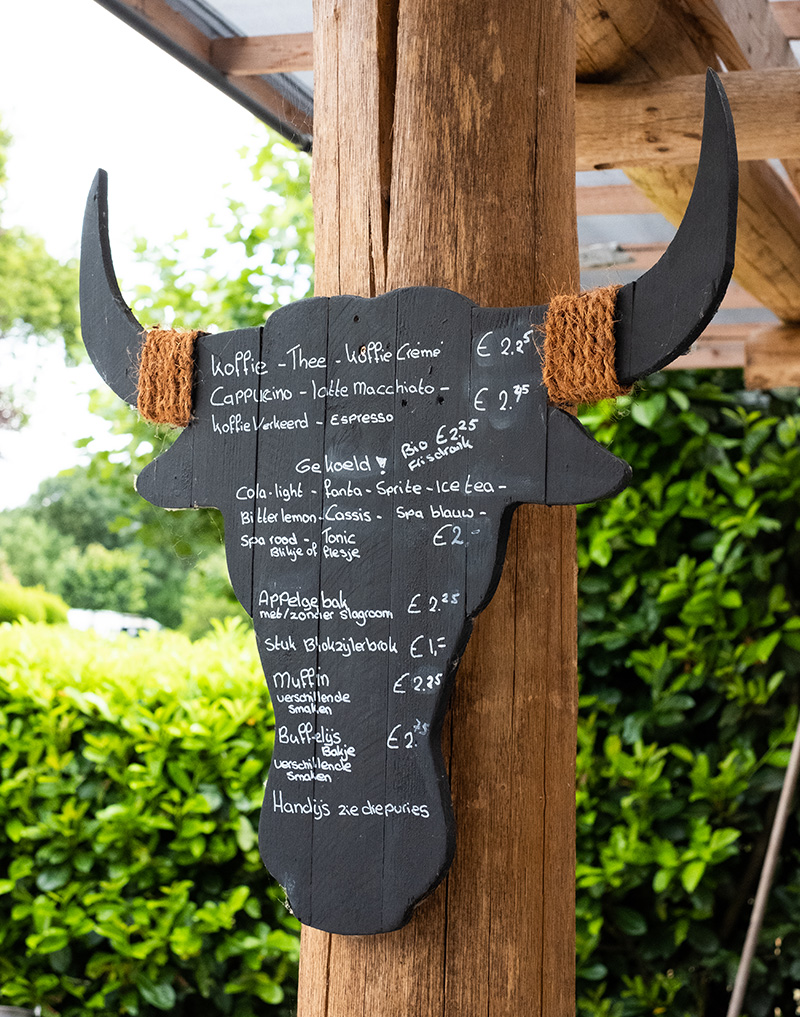 Koffie - Thee - Koffie Crème € 2.25
Cappucino - latte Macchiato - € 2.75
koffie Verkeerd - Espresso
Bio € 2.25
Frisdrank
Gekoeld!
Cola-light - Fanta - Sprite - Ice tea -
Bitterlemon - Cassis - Spa blauw -
Spa rood - Tonic € 2.-
Blikje of flesje
Appelgebak € 2.25
met/zonder slagroom
Stuk Blokzijlerbrok € 1,=
Muffin € 2.25
verschillende
smaken
Buffelijs € 2.75
Bakje
verschillende
smaken
Handijs zie diepvries